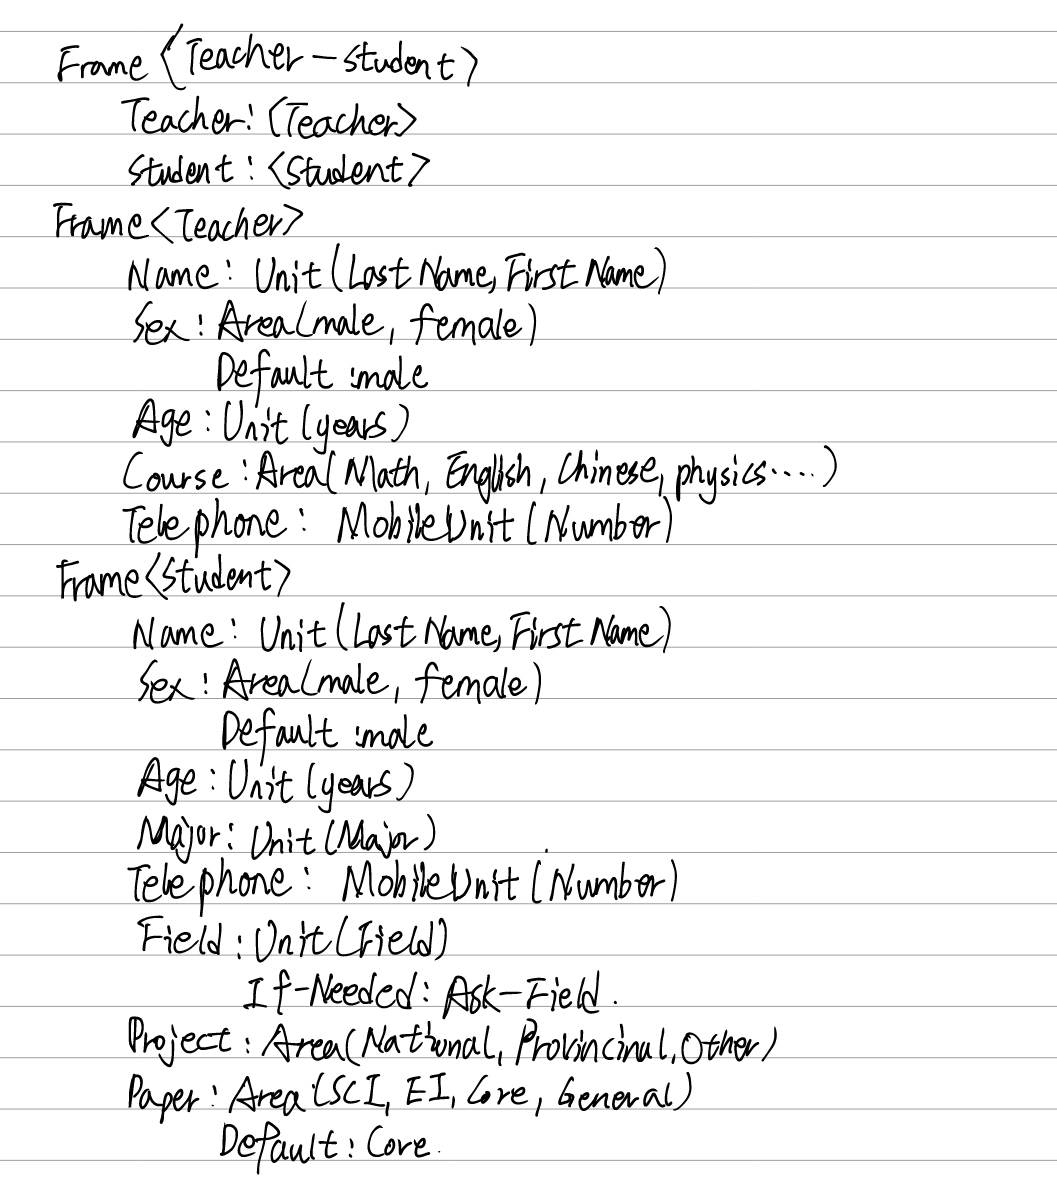 Frame <Teacher-student>
Teacher: <Teacher>
Student: <Student>
Frame <Teacher>
Name: Unit (Last Name, First Name)
Sex: Area (male, female)
Default: male
Age: Unit (years)
Course: Area (Math, English, Chinese, physics....)
Telephone: MobileUnit (Number)
Frame <Student>
Name: Unit (Last Name, First Name)
Sex: Area (male, female)
Default: male
Age: Unit (years)
Major: Unit (Major)
Telephone: MobileUnit (Number)
Field: Unit (Field)
If-Needed: Ask-Field.
Project: Area (National, Provincinal, Other)
Paper: Area (SCI, EI, Core, General)
Default: Core.